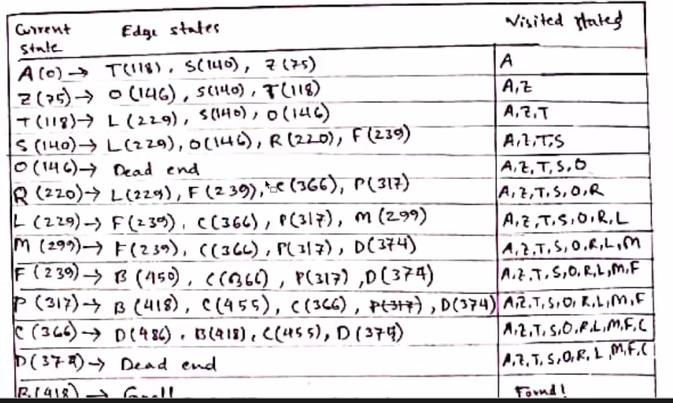 Current state Edge states Visited states
A(0) → T(118), S(140), Z(75) A
Z(75) → O(146), S(140), T(118) A,Z
T(118) → L(229), S(140), O(146) A,Z,T
S(140) → L(229), O(146), R(220), F(239) A,Z,T,S
O(146) → Dead end A,Z,T,S,O
R(220) → L(229), F(239), C(366), P(317) A,Z,T,S,O,R
L(229) → F(239), C(366), P(317), M(299) A,Z,T,S,O,R,L
M(299) → F(239), C(366), P(317), D(374) A,Z,T,S,O,R,L,M
F(239) → B(450), C(366), P(317), D(374) A,Z,T,S,O,R,L,M,F
P(317) → B(418), C(455), C(366), P(317), D(374) A,Z,T,S,O,R,L,M,F
C(366) → D(486), B(418), C(455), D(374) A,Z,T,S,O,R,L,M,F,C
D(374) → Dead end A,Z,T,S,O,R,L,M,F,C
B(418) → Goal! Found!